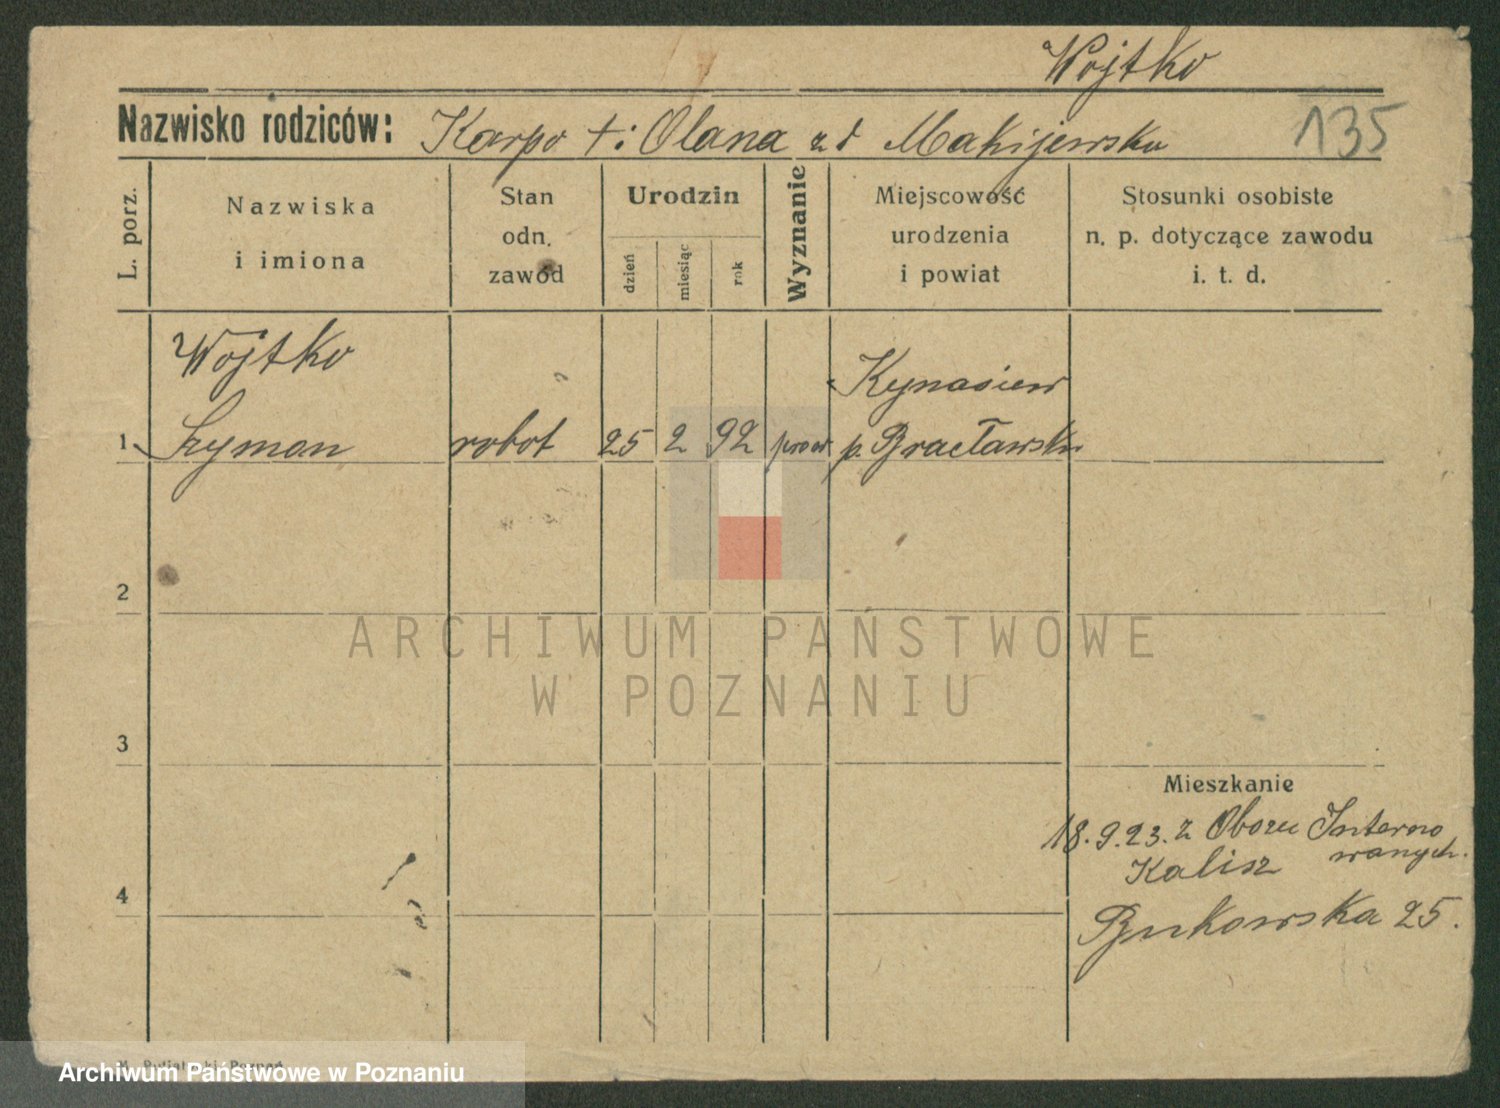 Wojtko
Nazwisko rodziców: Karpo †: Olana z d Makijewska
135
L. porz.
Nazwiska
i imiona
Stan
odn.
zawód
Urodzin
dzień
miesiąc
rok
Wyznanie
Miejscowość
urodzenia
i powiat
Stosunki osobiste
n. p. dotyczące zawodu
i. t. d.
Wojtko
Kynasiew
1 Szymon robot 25 2 92 praw p. Bracławski
2
ARCHIWUM PAŃSTWOWE
W POZNANIU
3
Mieszkanie
18.9.23. z Obozu Interno
wanych.
Kalisz
4
Bukowska 25.
Archiwum Państwowe w Poznaniu